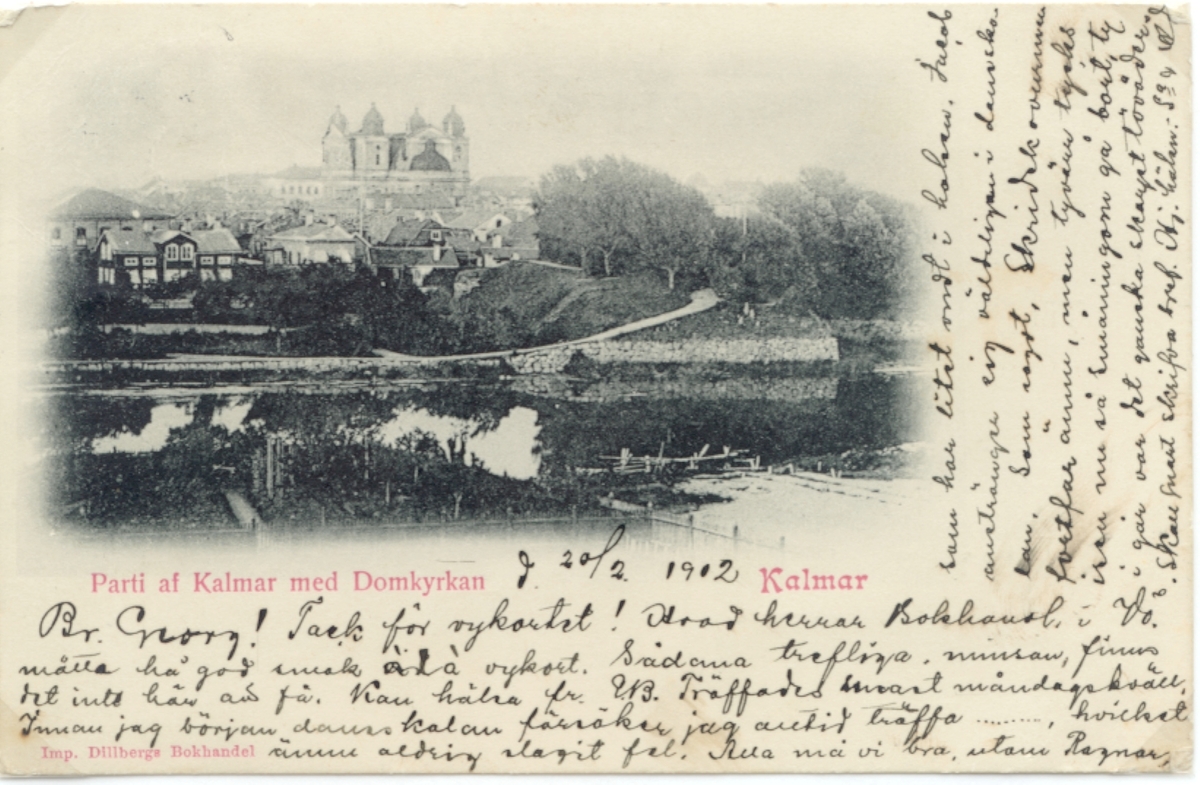 Parti af Kalmar med Domkyrkan
d. 20/2 1902
Kalmar
Br. Georg! Tack för vykortet! Hvad herrar Bokhandl. i Vb.
måtta ha god smak å vykort. Sådana trefliga, minsan, finns
det inte här att få. Kan hälsa fr. WB. Träffades senast måndagskväll.
Innan jag börjar dansskolan försöker jag alltid träffa ........., hvilket
Imp. Dillbergs Bokhandel
ännu aldrig slagit fel. Alla må vi bra, utom Ragnar,
som har litet ondt i halsen. Jacob
anstränger sig väldeligen i dansko-
lan. Som nogst, Skridsk
fortfar ännu, men tyvärr tycks
isen nu så småningom gå bort, ty
i går var det ganska skarpt töväder.
Skall snart skrifva bref. Hj. häln.